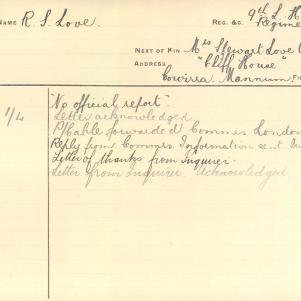 NAME R. S. Love.
REG. &C. 9th L. H.
Regime
NEXT OF KIN Mrs Stewart Love
ADDRESS "Cliff House"
Cowirra Mannum
1/4 "No official report".
Letter acknowledged
P/Cable forwarded Commrs London
Reply from Commrs. Information sent
Letter of thanks from Inquirer.
Letter from Inquirer Acknowledged